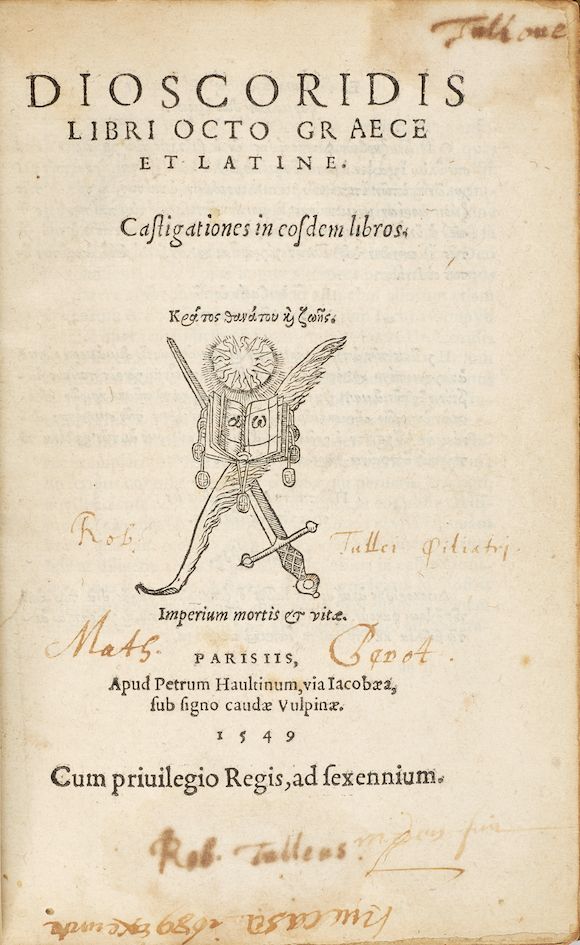 DIOSCORIDIS
LIBRI OCTO GRAECE
ET LATINE.
Caſtigationes in eoſdem libros.
Κράτος θανάτου ϗ ζωῆς.
α ω
Rob. Tullei Philiatri.
Imperium mortis & vitæ.
Math. Perot.
PARISIIS,
Apud Petrum Haultinum, via Iacobæa,
ſub ſigno caudæ Vulpinæ.
1549
Cum priuilegio Regis, ad ſexennium.
Rob. Tulleus
1689